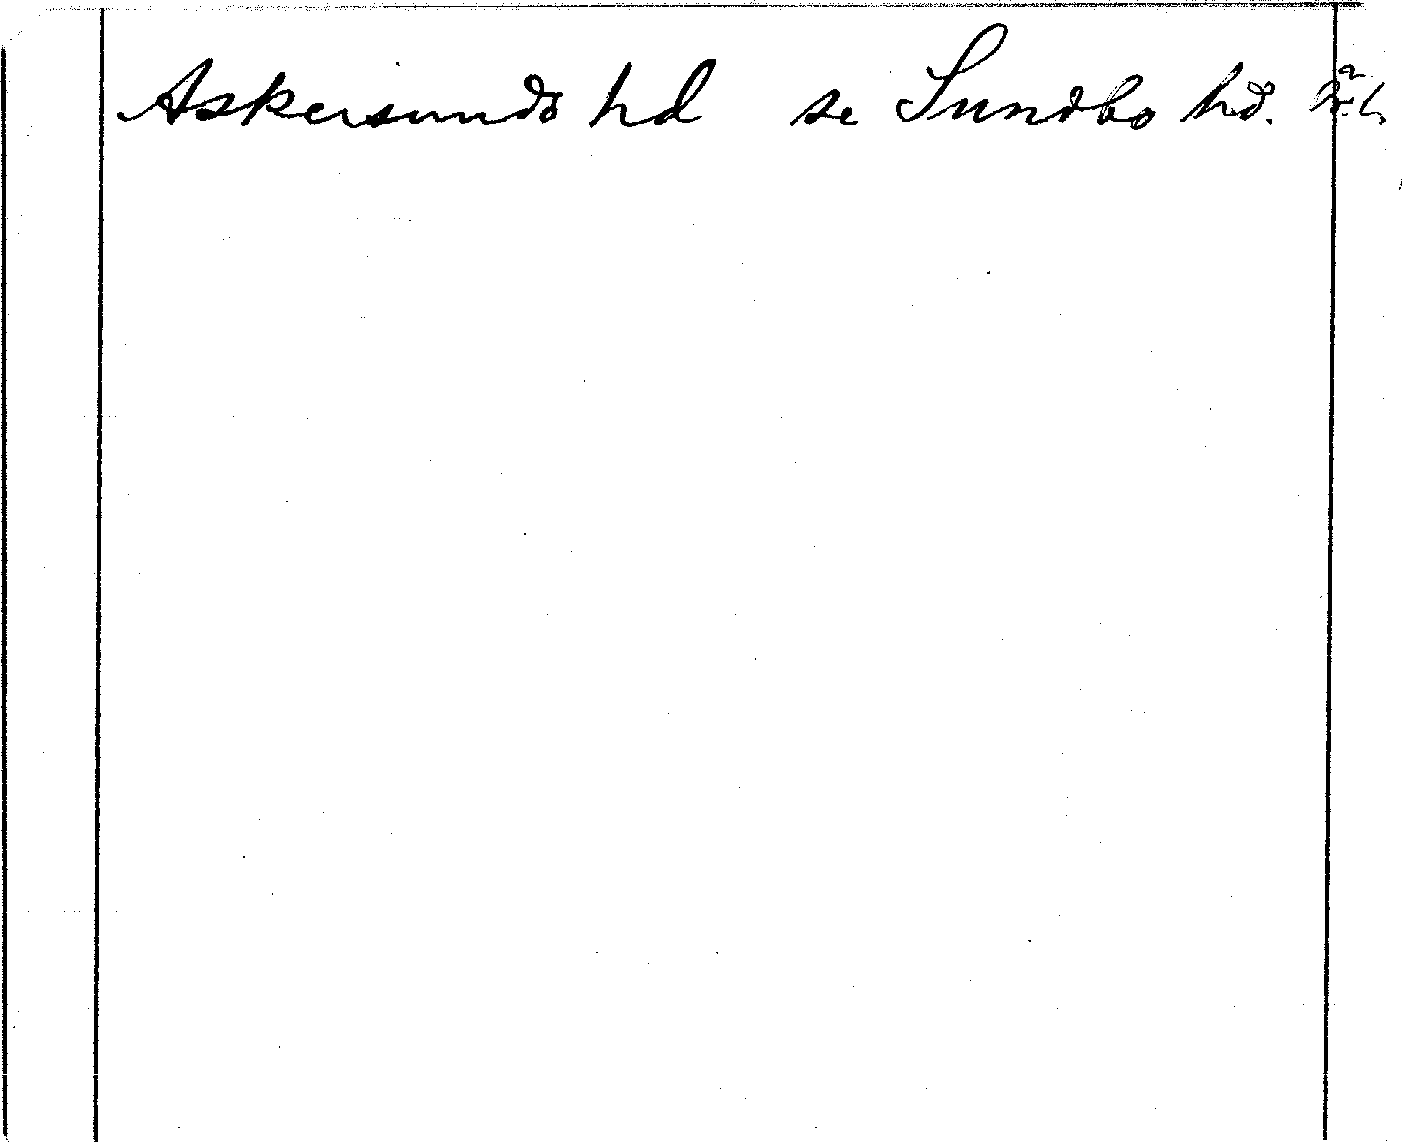 Askersunds hd se Sundbo hd.